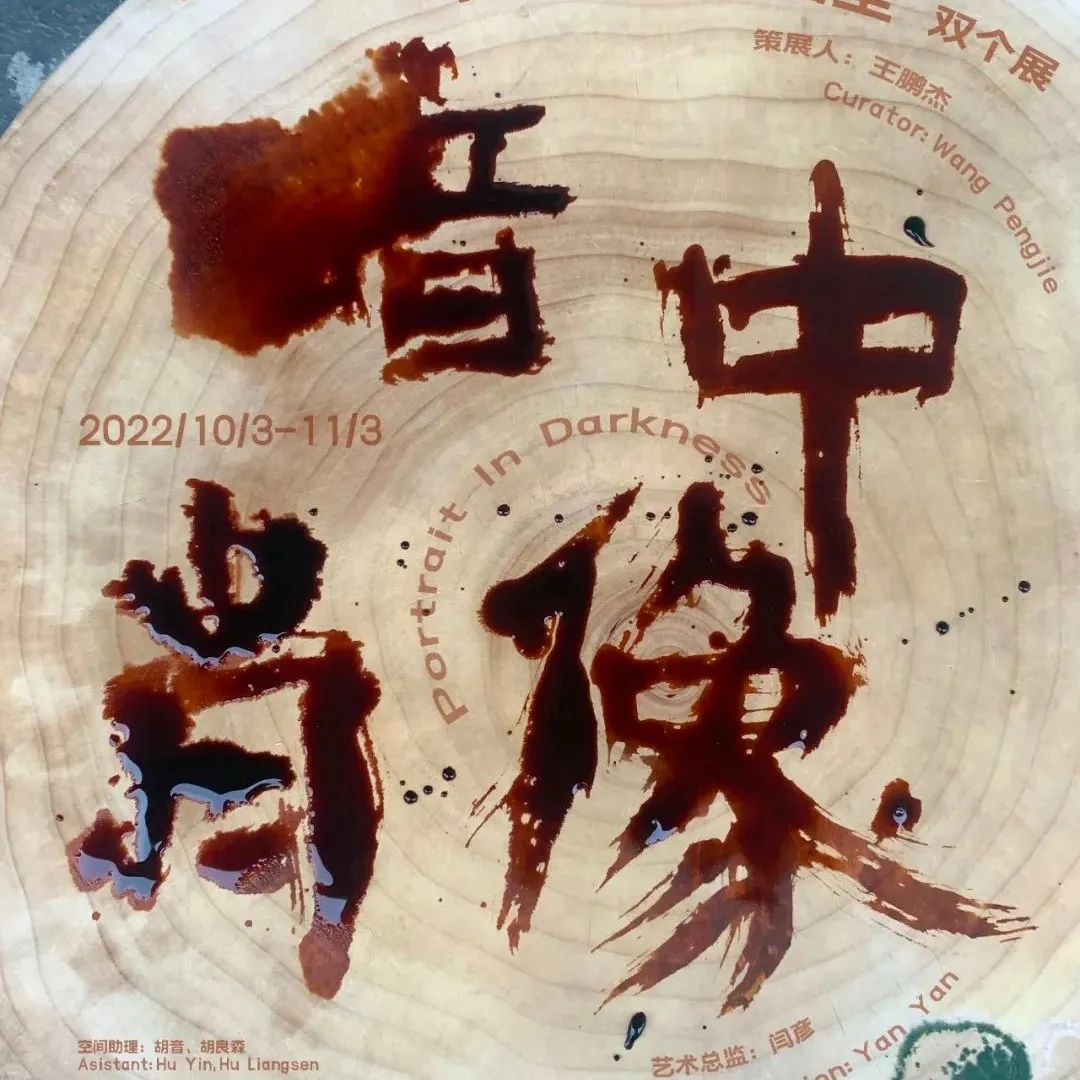 双个展
策展人：王鹏杰
Curator:Wang Pengjie
暗中
2022/10/3-11/3
Portrait In Darkness
肖像
空间助理：胡音、胡良森
Asistant:Hu Yin,Hu Liangsen
艺术总监：闫彦
Yan Yan